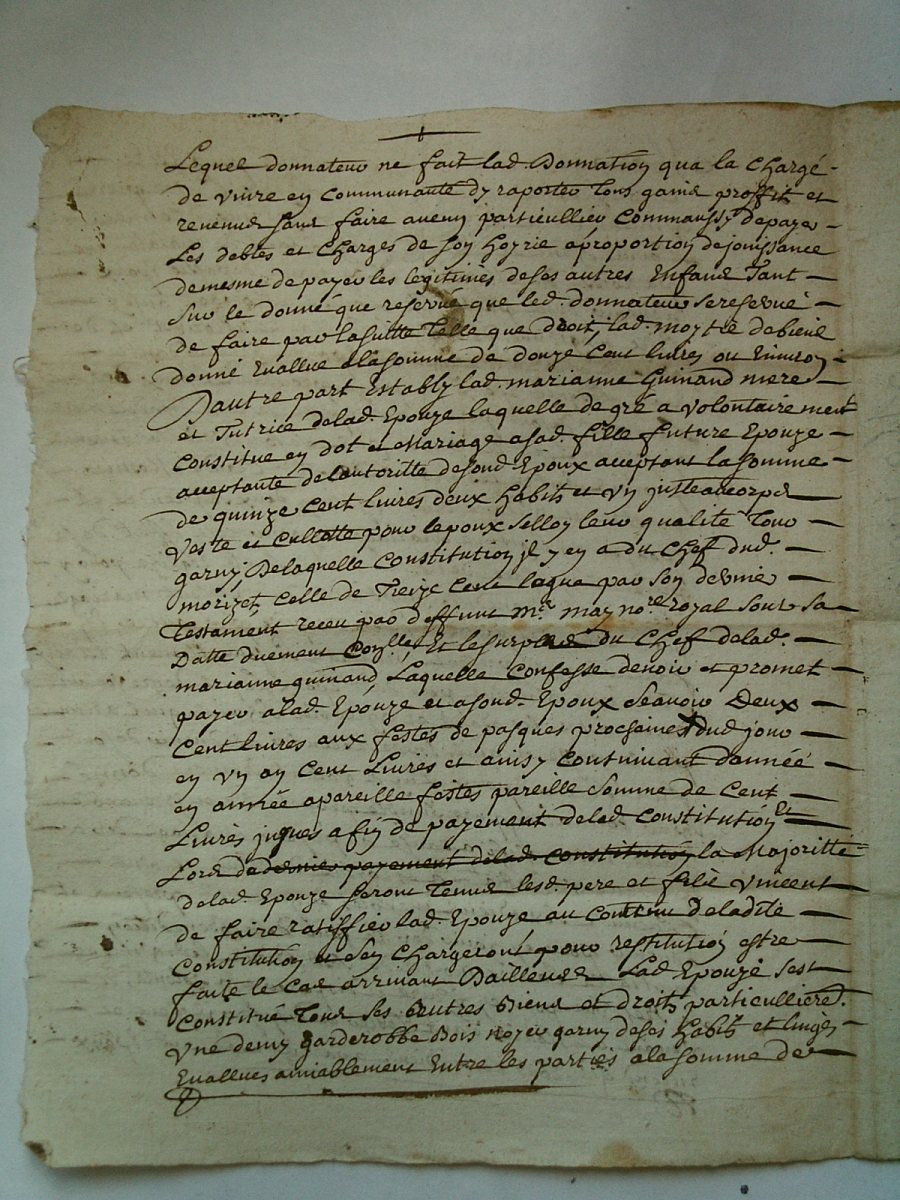 Lequel donnateur ne fait lad. Donnation qua la Chargé
de vivre en Communauté dy raporter tous gains proffit et
revenus sans faire aucun particullier Commaussy de payer
Les debtes et Charges de son hoyrie a proportion de jouissance
de mesme de payer les legitimes de ses autres Enfans Tant
Sur le donné que reservé que led. donnateur se reserve
de faire par la suitte Telle que droit, lad. moytié de biens
donné Evallué a la somme de douze Cent livres ou Environ
Dautre part Establÿ lad. marianne Guinand mere
et Tutrice de lad. Epouze laquelle de gré a volontairement
Constitué en dot et Mariage a sad. fille future Epouze
acceptante de lautoritté de sond. Epoux acceptant la somme
de quinze Cent livres deux habits et un justeaucorps
Veste et Cullotte pour lepoux selloy leur qualité Tout
garny De laquelle Constitution jl y en a du Chef dud.
morizet Celle de Treize Cent legué par son dernier
Testament receu par deffunt Mr. may nore. royal sous sa
Datte duement Conlle, Et le surplus du Chef de lad.
marianne guinand, Laquelle Confesse devoir et promet
payer a lad. Epouze et a sond. Epoux Scavoir Deux
Cent livres aux festes de pasques prochaines dud jour
en un an Cent Livres et ainsy Continuant dannéé
en année a pareille festes pareille Somme de Cent
Livres juques a fin de payement de lad. Constitution Et
Lors de dernier payement de lad. Constitution la Majoritté
de lad. Epouze seront Tenus lesd. pere et fils Vincent
de faire ratiffier lad. Epouze au Contenu de ladite
Constitution et sen Chargeront pour restitution estre
faite le Cas arrivant Dailleurs Lad. Epouze sest
Constitué Tous ses autres Biens et droits particulliers.
Une demy garderobbe Bois noyer garny de ses habits et linges
Evallues amiablement Entre les parties a la somme de